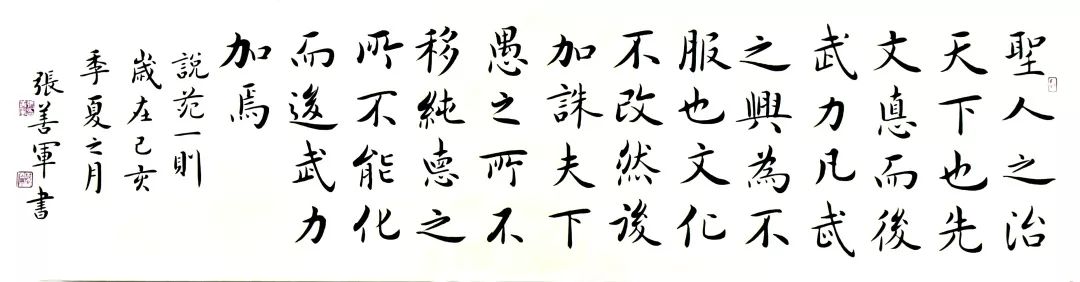 聖人之治
天下也先
文悳而後
武力凡武
之興為不
服也文化
不改然後
加誅夫下
愚之所不
移純悳之
所不能化
而後武力
加焉
說苑一則
歲在己亥
季夏之月
張善軍書